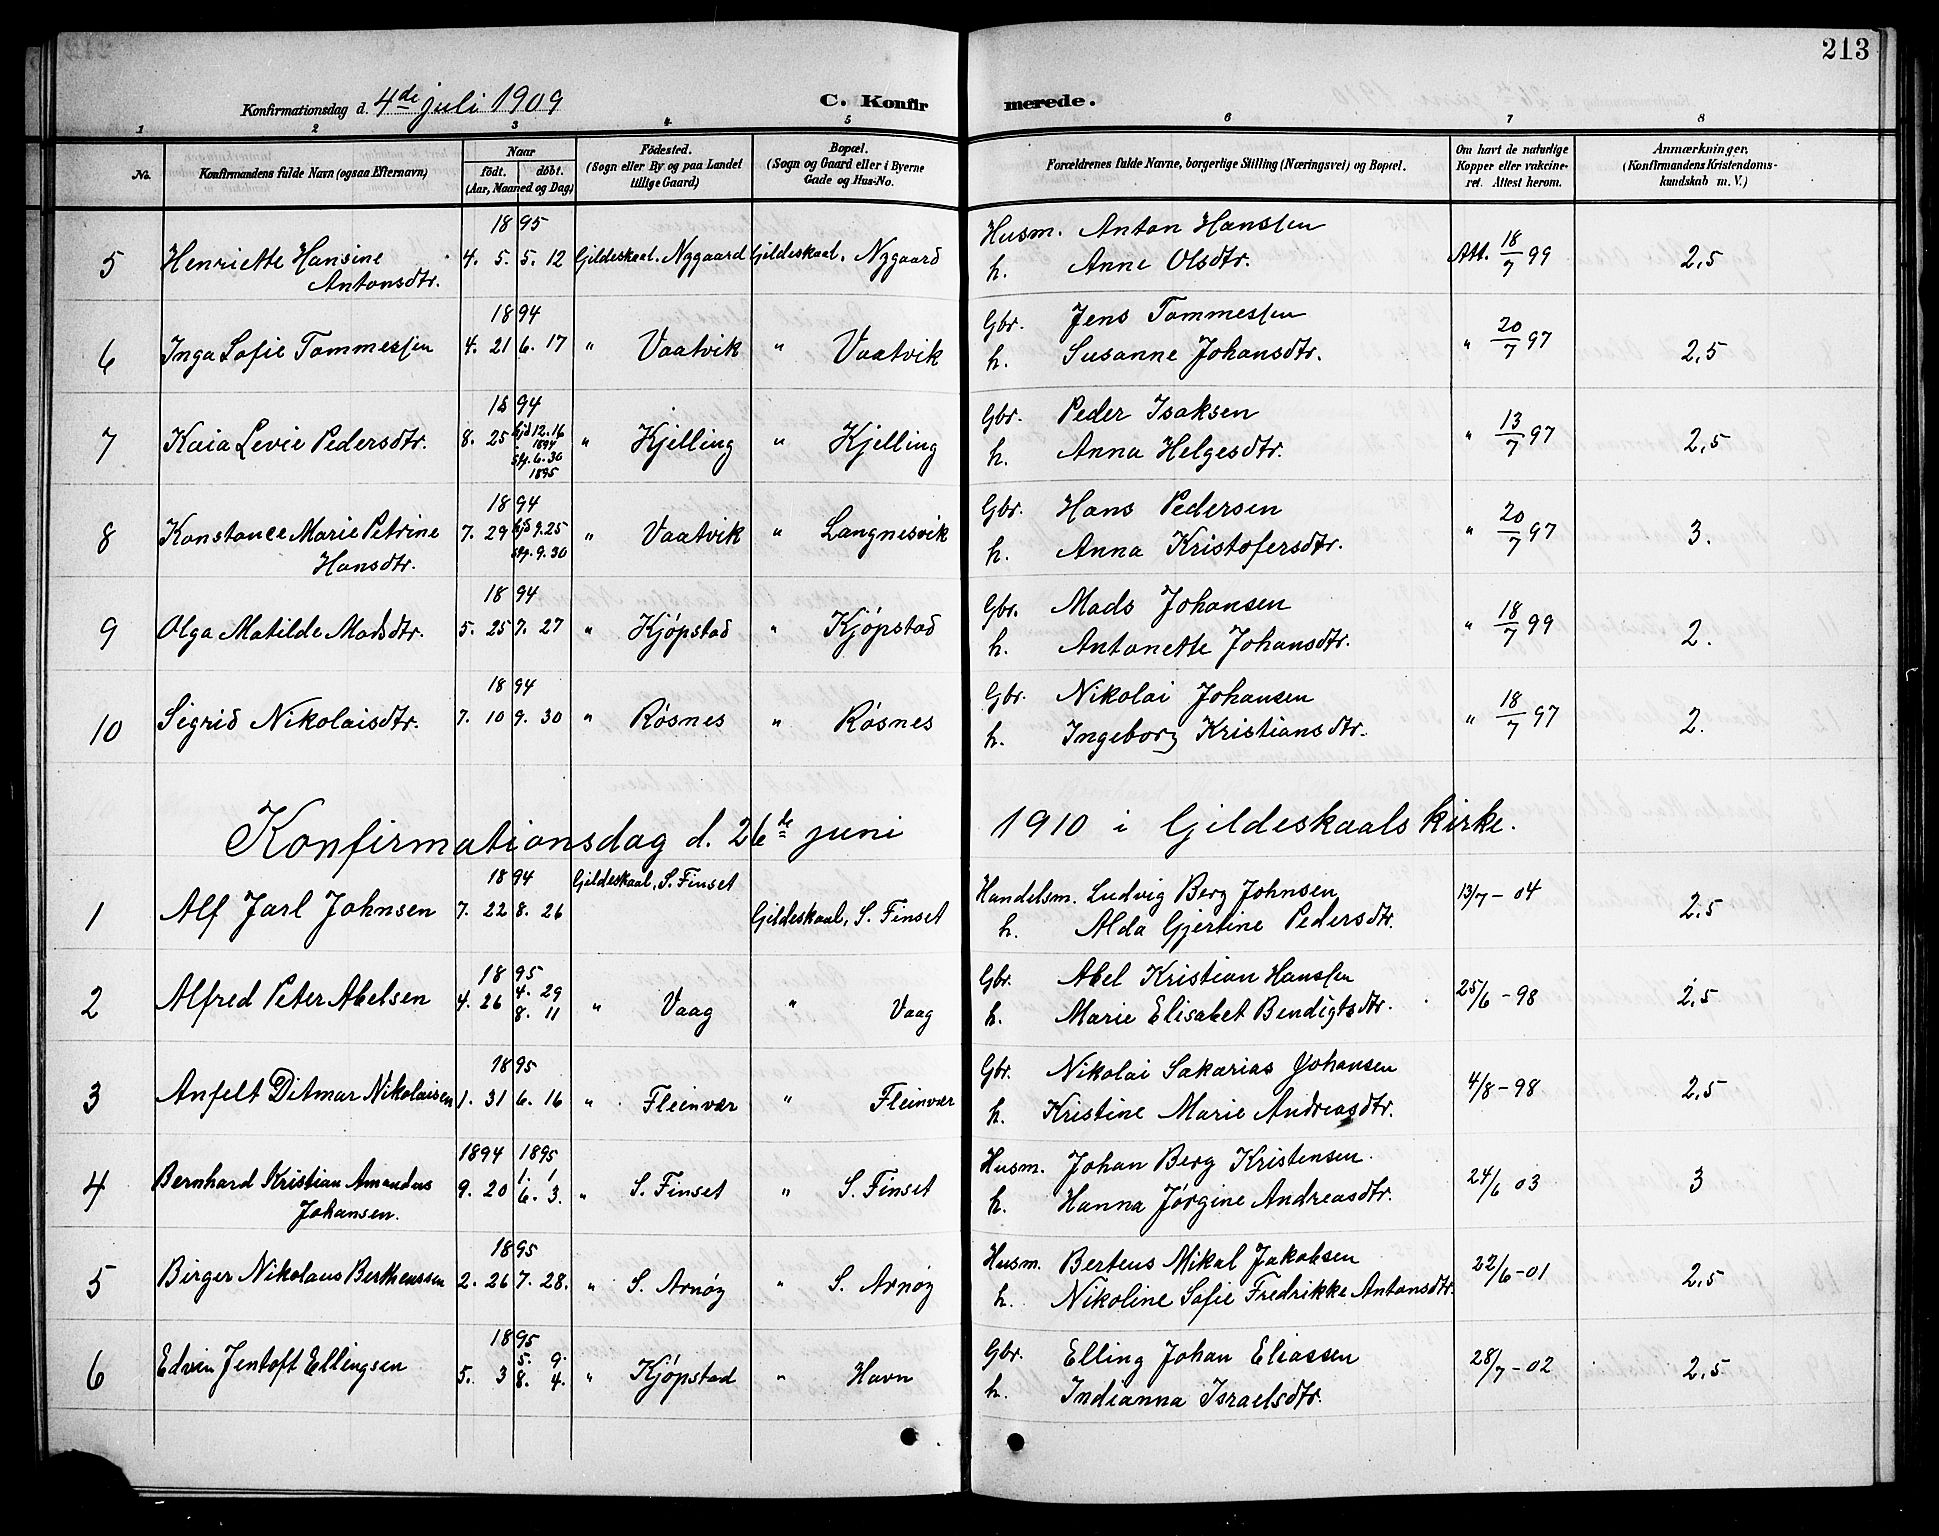 213
Konfirmationsdag d. 4de juli 1909 C. Konfirmerede.
1 2 3 4 5 6 7 8
No. Konfirmandens fulde Navn (ogsaa Efternavn) Naar født. døbt. (Aar, Maaned og Dag) Fødested. (Sogn eller By og paa Landet tillige Gaard) Bopæl. (Sogn og Gaard eller i Byerne Gade og Hus-No. Forældrenes fulde Navne, borgerlige Stilling (Næringsvei) og Bopæl. Om havt de naturlige Kopper eller vakcineret. Attest herom. Anmærkninger. (Konfirmandens Kristendomskundskab m. V.)
1895
5 Henriette Hansine Antonsdtr. 4. 5. 5. 12 Gildeskaal. Nygaard Gildeskaal. Nygaard Husm. Anton Hanssen h. Anne Olsdtr. Att. 18/7 99 2,5
1894
6 Inga Sofie Tommessen 4. 21 6. 17 " Vaatvik " Vaatvik Gbr. Jens Tommessen h. Susanne Johansdtr. " 20/7 97 2,5
1894
7 Kaia Levie Pedersdtr. 8. 25 hjd 12. 16 1894 stf. 6. 30 1895 " Kjelling " Kjelling Gbr. Peder Isaksen h. Anna Helgesdtr. " 13/7 97 2,5
1894
8 Konstance Marie Petrine Hansdtr. 7. 29 hjd 9. 25 stf. 9. 30 " Vaatvik " Langnesvik Gbr. Hans Pedersen h. Anna Kristofersdtr. " 20/7 97 3.
1894
9 Olga Matilde Madsdtr. 5. 25 7. 27 " Kjøpstad " Kjøpstad Gbr. Mads Johansen h. Antonette Johansdtr. " 18/7 99 2.
1894
10 Sigrid Nikolaisdtr. 7. 10 9. 30 " Røsnes " Røsnes Gbr. Nikolai Johansen h. Ingeborg Kristiansdtr. " 18/7 97 2.
Konfirmationsdag d. 26de juni 1910 i Gildeskaals kirke.
1894
1 Alf Jarl Johnsen 7. 22 8. 26 Gildeskaal, S. Finset Gildeskaal, S. Finset Handelsm. Ludvig Berg Johnsen h. Alda Gjertine Pedersdtr. 13/7 - 04 2,5
1895
2 Alfred Peter Abelsen 4. 26 4. 29 8. 11 " Vaag " Vaag Gbr. Abel Kristian Hanssen h. Marie Elisabet Bendigtsdtr. 25/6 - 98 2,5
1895
3 Anfelt Ditmar Nikolaisen 1. 31 6. 16 " Fleinvær " Fleinvær Gbr. Nikolai Sakarias Johansen h. Kristine Marie Andreasdtr. 4/8 - 98 2,5
1894 1895
4 Bernhard Kristian Amandus Johansen. 9. 20 1. 1 6. 3. " S. Finset " S. Finset Husm. Johan Berg Kristensen h. Hanna Jørgine Andreasdtr. 24/6 03 3
1895
5 Birger Nikolaus Bertheussen 2. 26 7. 28. " S. Arnøy " S. Arnøy Husm. Berteus Mikal Jakobsen h. Nikoline Sofie Fredrikke Antonsdtr. 22/6 - 01 2,5
1895
6 Edvin Jentoft Ellingsen 5. 3 5. 9. 8. 4. " Kjøpstad " Havn Gbr. Elling Johan Eliassen h. Indianna Israelsdtr. 28/7 - 02 2,5